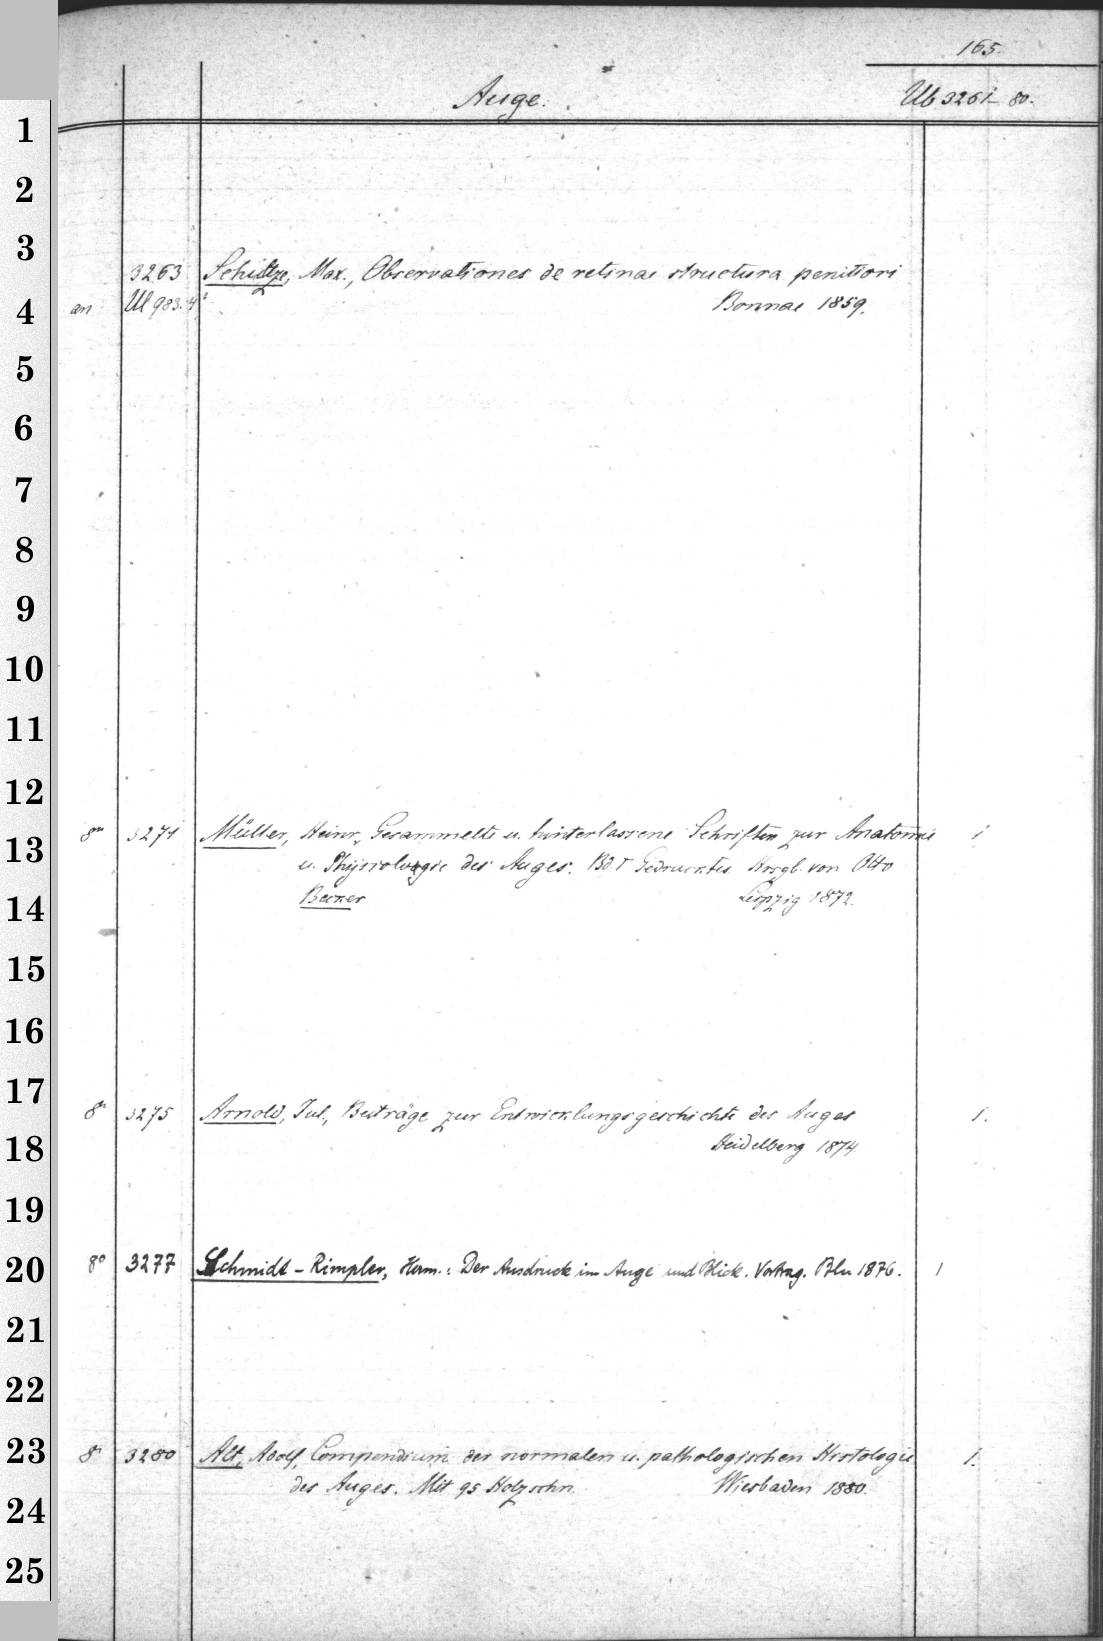 165.
Auge.
Ub 3261-80.
1
2
3
3263 Schultze, Max., Observationes de retinae structura penitiori
4
an Ul 983.4° Bonnae 1859.
5
6
7
8
9
10
11
12
8° 3271 Müller, Heinr., Gesammelte u. hinterlassene Schriften zur Anatomie 1
13
u. Physiologie des Auges. Bd I Gedrucktes Hrsgb. von Otto
14
Becker Leipzig 1872.
15
16
17
8° 3275 Arnold, Jul., Beiträge zur Entwicklungsgeschichte des Auges 1.
18
Heidelberg 1874
19
20
8° 3277 Schmidt-Rimpler, Herm.: Der Ausdruck im Auge und Blick. Vortrag. Bln 1876. 1
21
22
23
8° 3280 Alt, Adolf, Compendium der normalen u. pathologischen Histologie 1.
24
des Auges. Mit 95 Holzschn. Wiesbaden 1880.
25